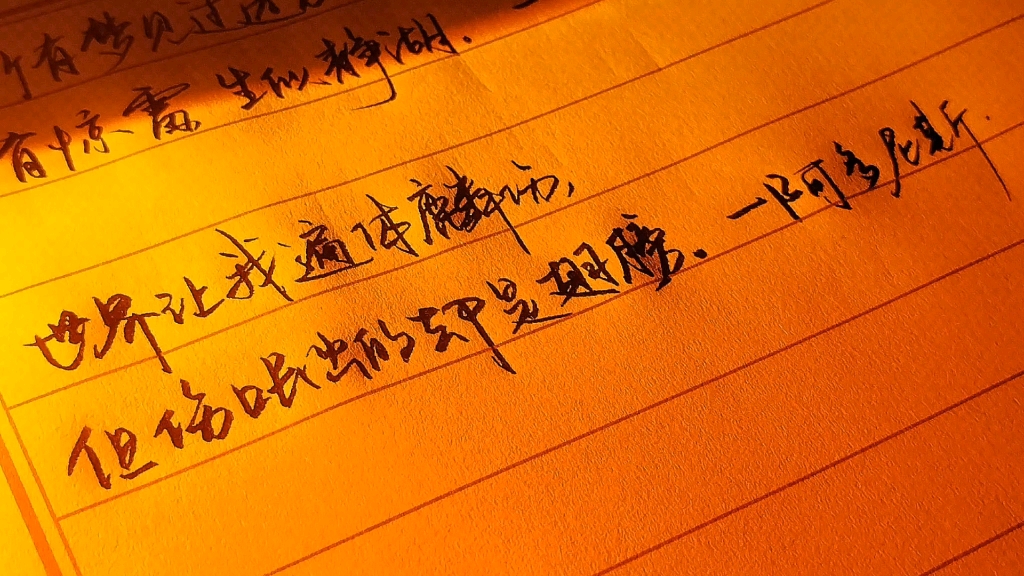 有梦见过
有惊雷 生似静湖.
世界让我遍体麟伤,
但伤口长出的却是翅膀. —阿多尼斯.